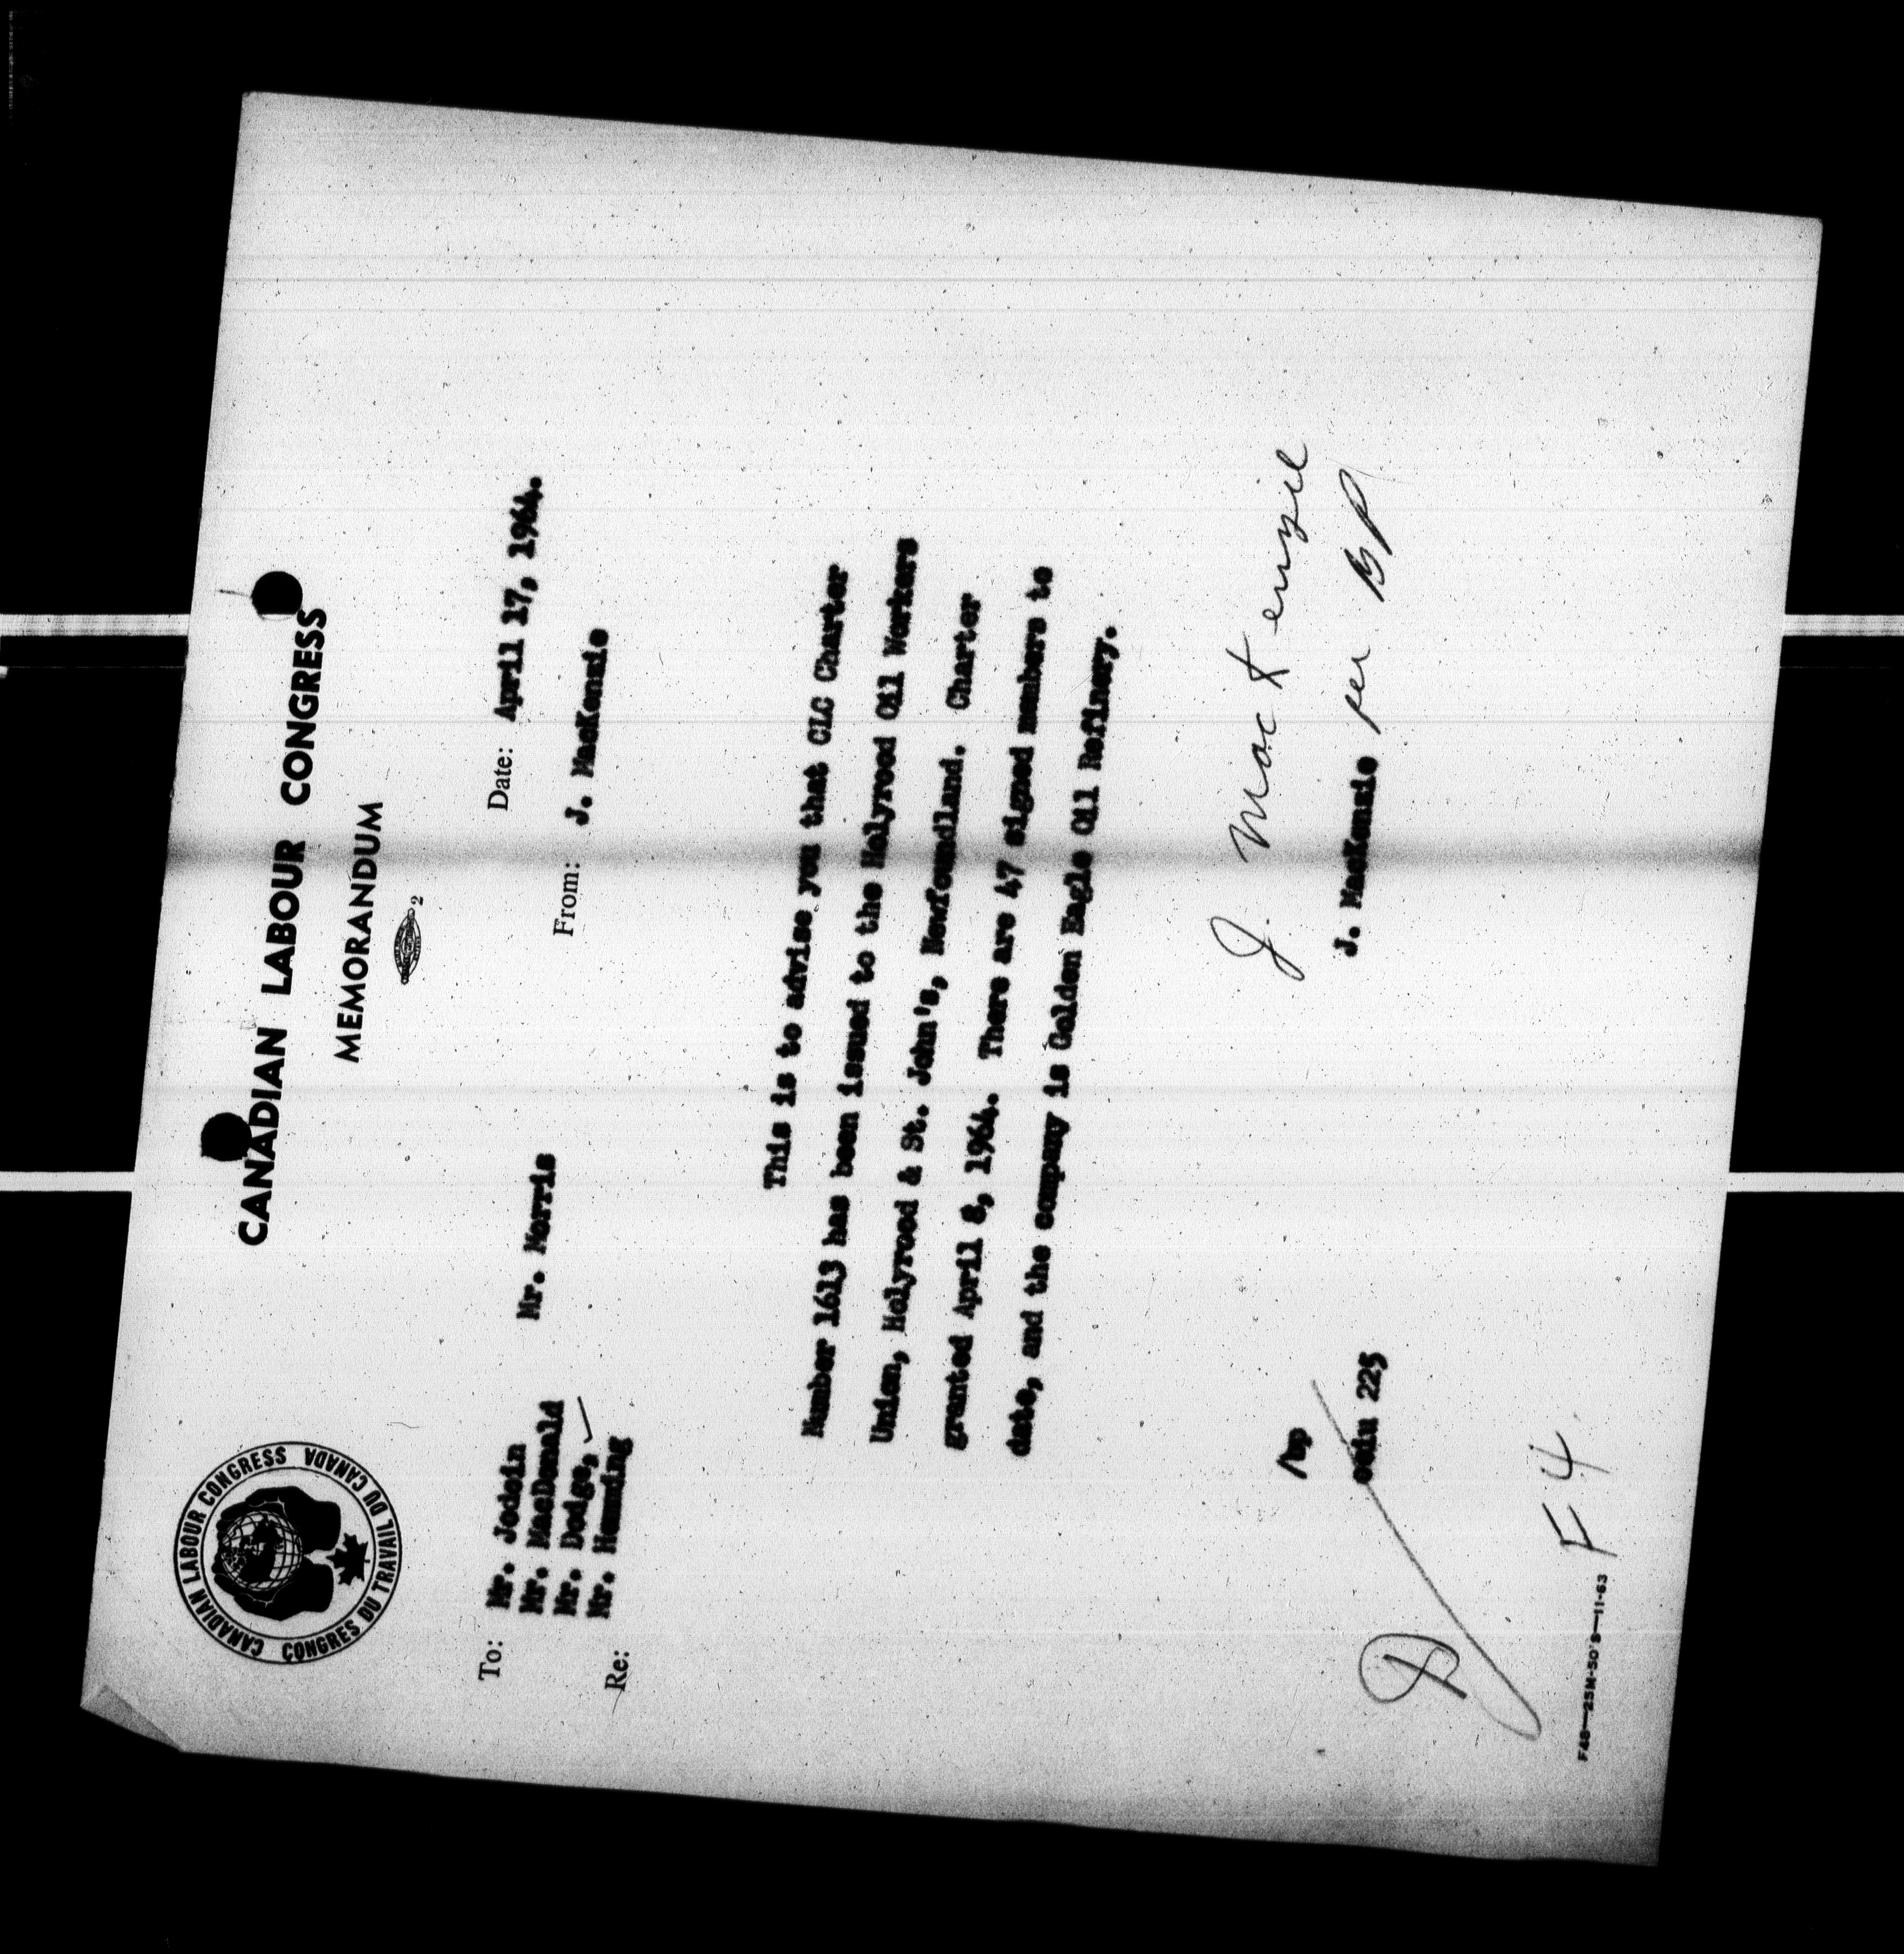 CANADIAN LABOUR CONGRESS CANADA
CONGRES DU TRAVAIL DU CANADA
CANADIAN LABOUR CONGRESS
MEMORANDUM
2
To: Mr. Jodoin Mr. Morris
Mr. MacDonald
Mr. Dodge,
Mr. Hemming
Date: April 17, 1964.
From: J. MacKenzie
Re:
This is to advise you that CLC Charter
Number 1613 has been issued to the Holyrood Oil Workers
Union, Holyrood & St. John's, Newfoundland. Charter
granted April 8, 1964. There are 47 signed members to
date, and the company is Golden Eagle Oil Refinery.
J. MacKenzie
J. MacKenzie per BP
/bp
oeiu 225
F4
F48—25M-50's—11-63